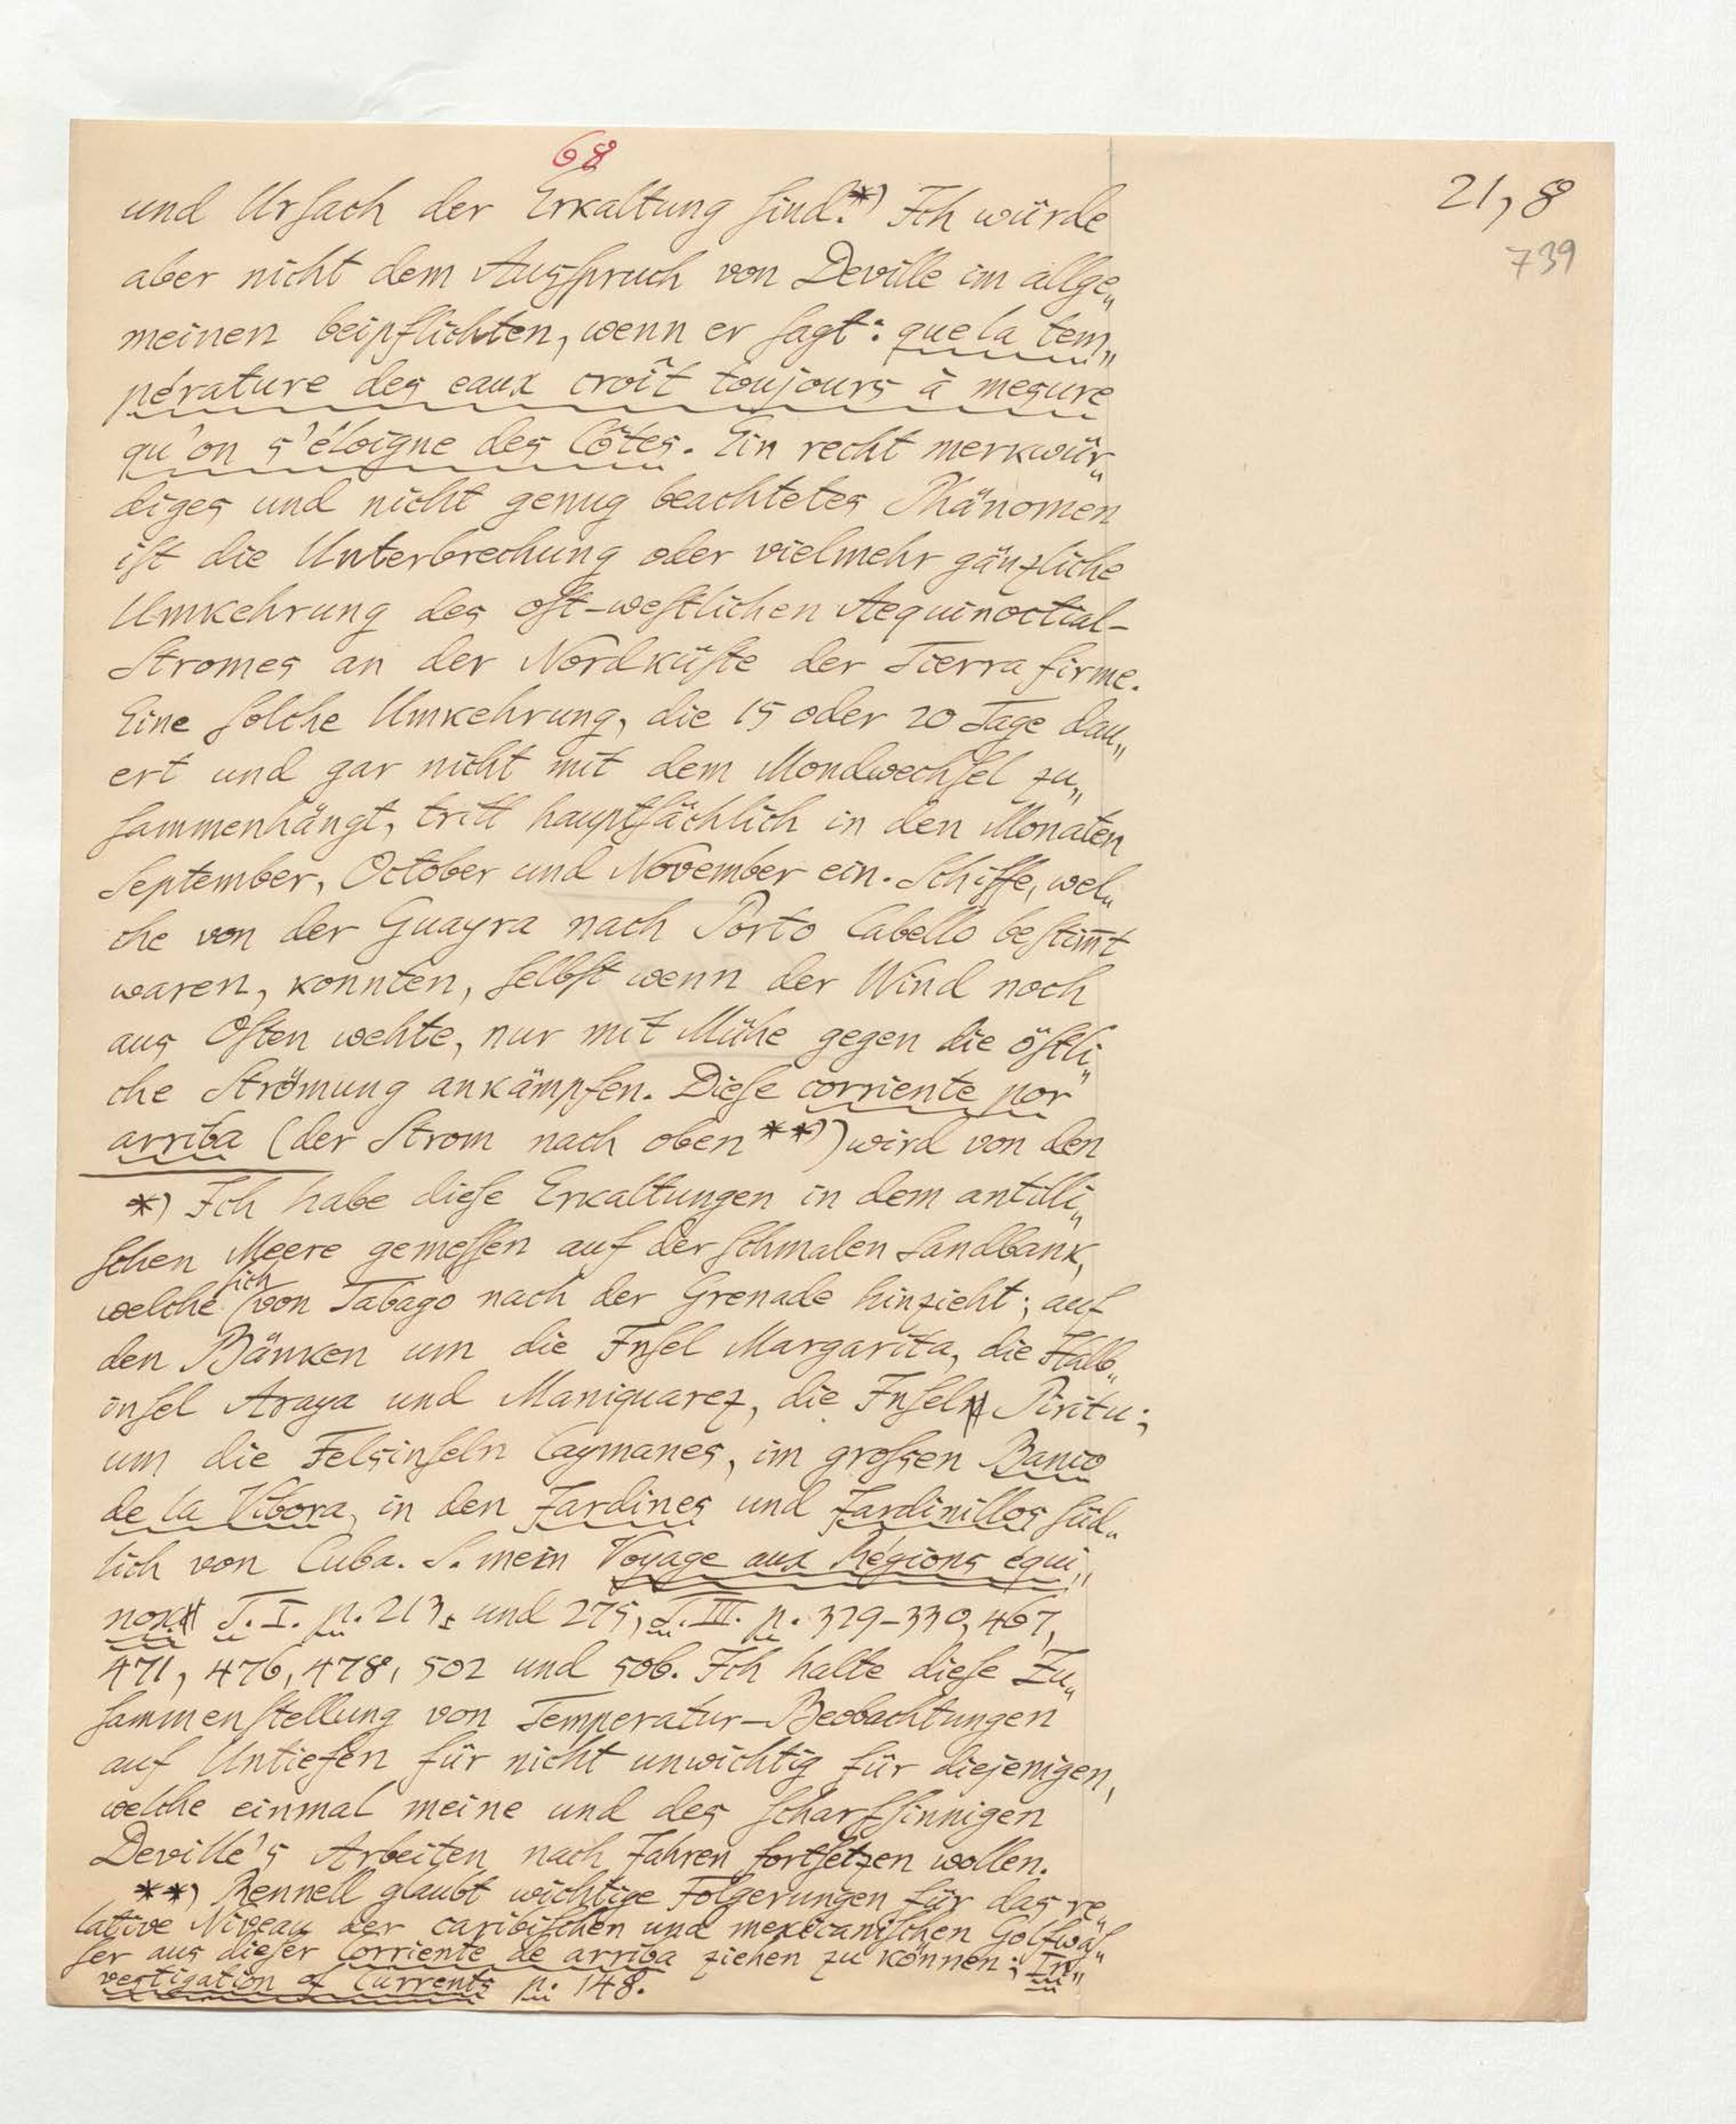 68
21,8
739
und Urſach der Erkaltung ſind.*) Ich würde
aber nicht dem Ausſpruch von Deville im allge„
meinen beipflichten, wenn er ſagt: que la tem„
pérature des eaux croît toujours à mesure
qu'on s'éloigne des Côtes. Ein recht merkwür„
diges und nicht genug beachtetes Phänomen
iſt die Unterbrechung oder vielmehr gänzliche
Umkehrung des oſt-weſtlichen Aequinoctial-
Stromes an der Nordküſte der Tierra firme.
Eine ſolche Umkehrung, die 15 oder 20 Tage dau„
ert und gar nicht mit dem Mondwechſel zu„
ſammenhängt, tritt hauptſächlich in den Monaten
September, October und November ein. Schiffe, wel„
che von der Guayra nach Porto Cabello beſtim̅t
waren, konnten, ſelbſt wenn der Wind noch
aus Oſten wehte, nur mit Mühe gegen die öſtli„
che Strömung ankämpfen. Dieſe corriente por
arriba (der Strom nach oben**)) wird von den
*) Ich habe dieſe Erkaltungen in dem antilli„
ſchen Meere gemeſſen auf der ſchmalen Sandbank,
welche ſich von Tabago nach der Grenade hinzieht; auf
den Bänken um die Inſel Margarita, die Halb„
inſel Araya und Maniquarez, die Inſeln Piritu;
um die Felsinſeln Caymanes, im groſsen Banco
de la Vibora, in den Jardines und Jardinillos ſüd„
lich von Cuba. S. mein Voyage aux Régions équi„
nox. T. I. p. 213. und 275, T. III. p. 329-330, 467,
471, 476, 478, 502 und 506. Ich halte dieſe Zu„
ſammenſtellung von Temperatur-Beobachtungen
auf Untiefen für nicht unwichtig für diejenigen,
welche einmal meine und des ſcharfſinnigen
Deville's Arbeiten nach Jahren fortſetzen wollen.
**) Rennell glaubt wichtige Folgerungen für das re„
lative Niveau der caribiſchen und mexicaniſchen Golfwäſ„
ſer aus dieſer Corriente de arriba ziehen zu können; In„
vestigation of Currents p. 148.